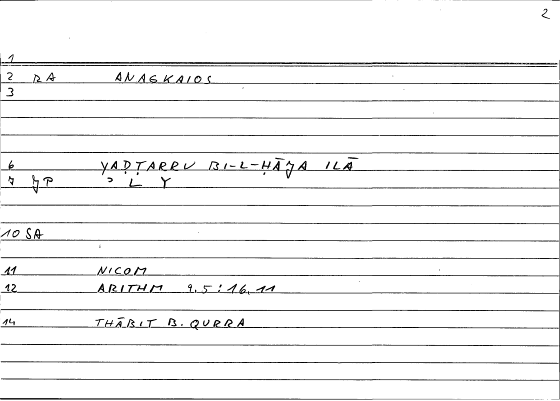 2
1
2 RA ANAGKAIOS
3
6 YAḌṬARRU BI-L-ḤĀJA ILĀ
7 JP ʾ L Y
10 SA
11 NICOM
12 ARITHM 9,5 : 16,11
14 THĀBIT B. QURRA